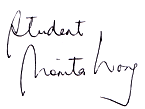 Student
Monita Wong